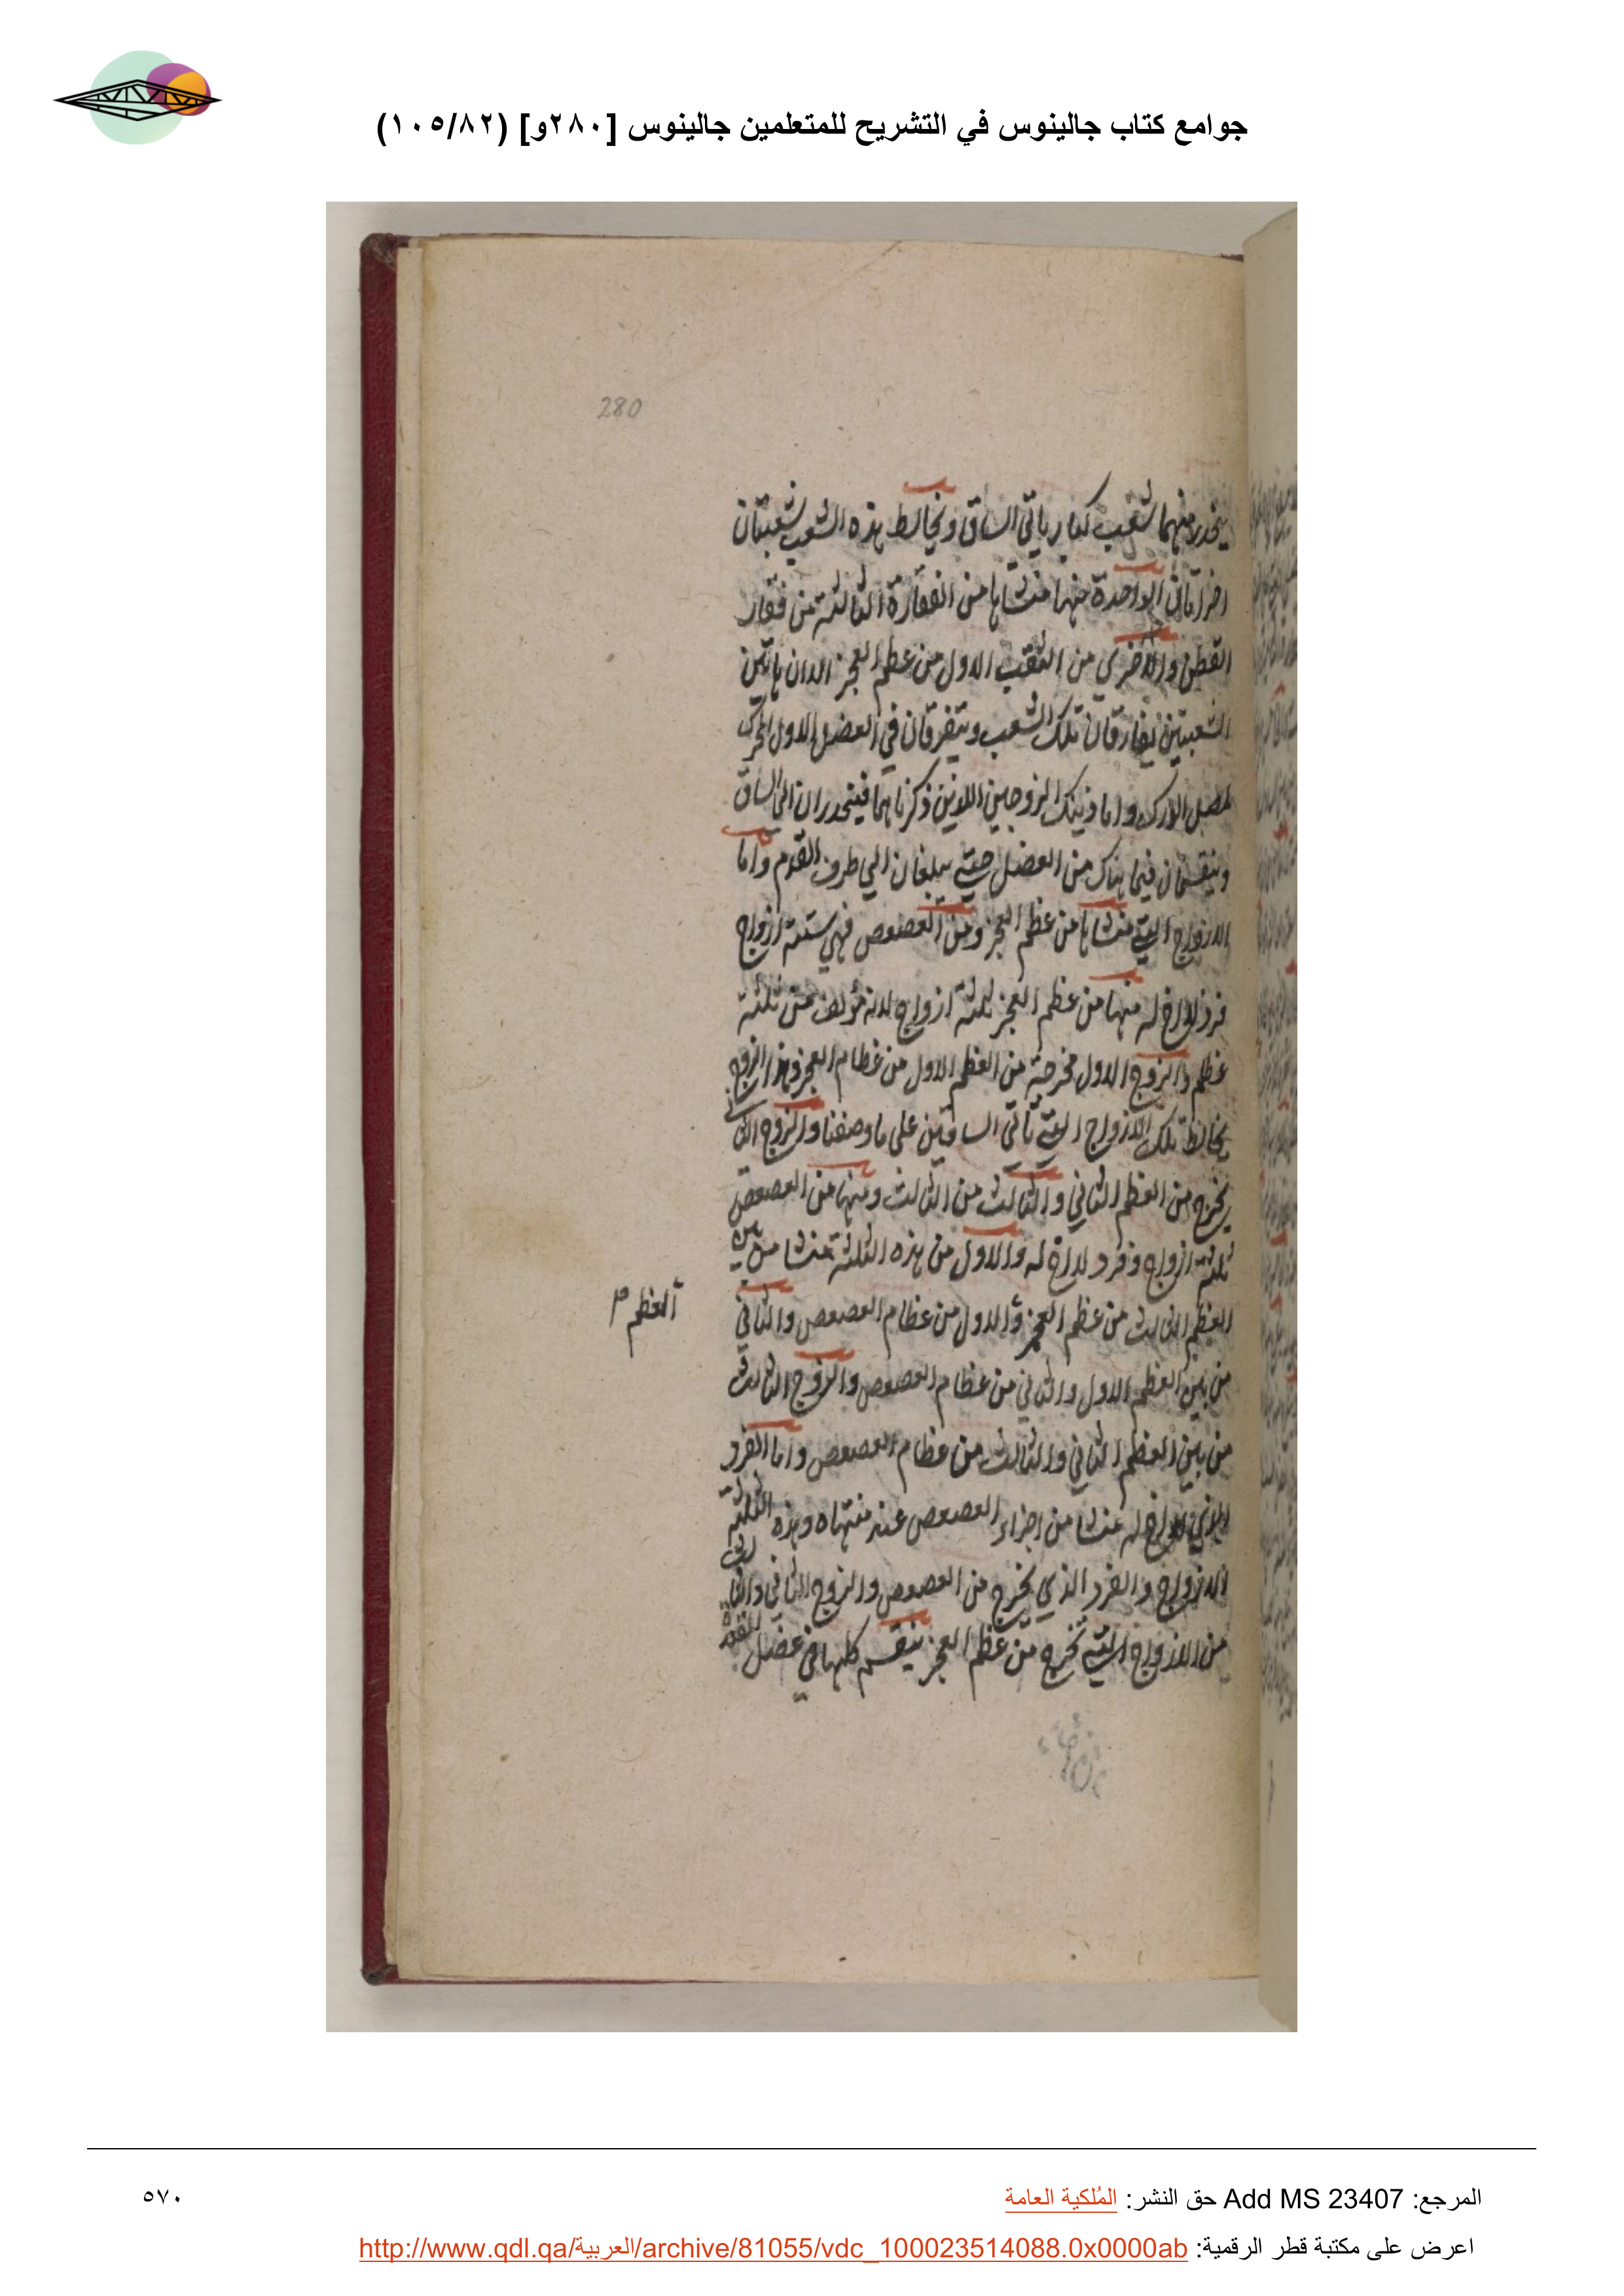 جوامع كتاب جالينوس في التشريح للمتعلمين جالينوس [٢٨٠و] (١٠٥/٨٢)
280
ينحدر منهما شعب كبار ياتي الساق ويخالط هذه الشعب شعبتان
اخراتان الواحدة منها منشاها من الفقارة الثالثة من فقار
القطن والاخرى من الثقب الاول من عظم العجز الا ان هاتين
الشعبتين يفارقان تلك الشعب ويتفرقان في العضل الاول المحرك
لمفصل الورك واما ذينك الزوجين اللذين ذكرناهما فينحدران الى الساق
وينقسمان فيما هناك من العضل حتى يبلغان الى طرف القدم واما
الازواج التي منشاها من عظم العجز ومن العصعص فهي ستة ازواج
فرد لا اخ له منها من عظم العجز ثلثة ازواج لانه مؤلف من ثلثة
عظم والزوج الاول مخرجه من العظم الاول من عظام العجز وهذا الزوج
يخالط تلك الازواج التي تاتي الساقين على ما وصفنا والزوج الثاني
يخرج من العظم الثاني والثالث من الثالث ومنها من العصعص
ثلثة ازواج وفرد لا اخ له والاول من هذه الثلثة منشا من بين
العظم الثالث من عظم العجز والاول من عظام العصعص والثاني
العظم
من بين العظم الاول والثاني من عظام العصعص والزوج الثالث
من بين العظم الثاني والثالث من عظام العصعص واما الفرد
الذي لا اخ له منشا من اجزاء العصعص عند منتهاه وهذه الثلثة
الازواج والفرد الذي يخرج من العصعص والزوج الثاني والثالث
من الازواج التي تخرج من عظم العجز ينقسم كلها في عضل
المرجع: Add MS 23407 حق النشر: المُلكية العامة
٥٧٠
اعرض على مكتبة قطر الرقمية: http://www.qdl.qa/العربية/archive/81055/vdc_100023514088.0x0000ab